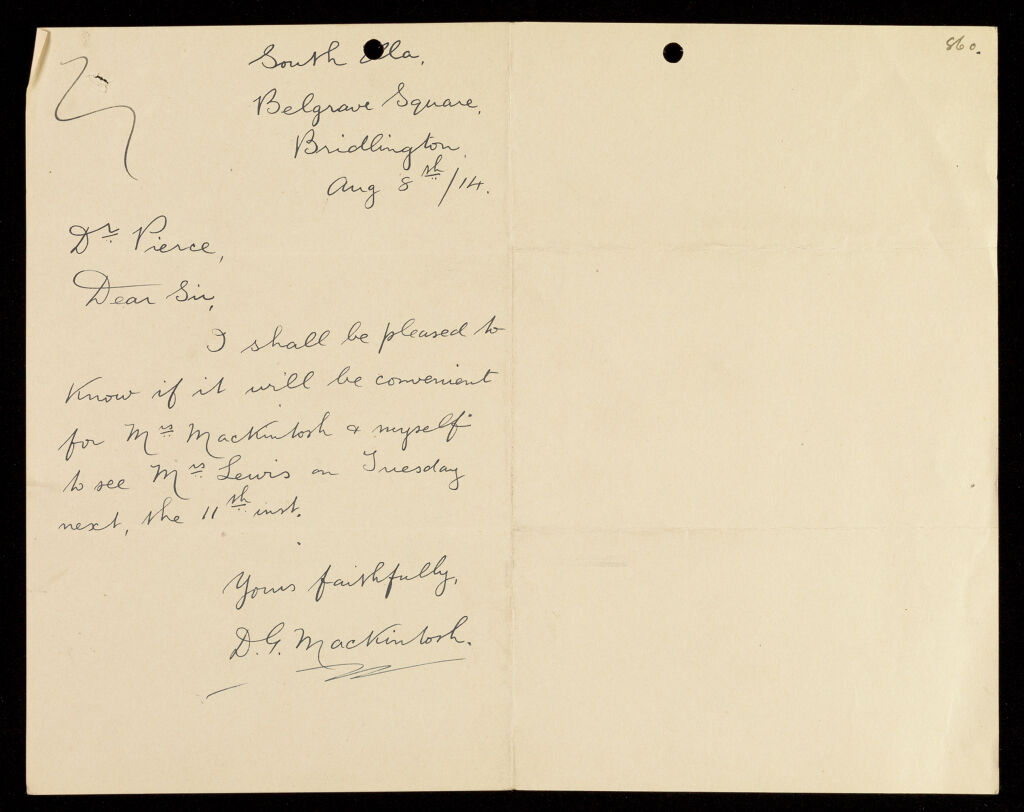 South Ella,
Belgrave Square,
Bridlington.
Aug 8th/14.
Dr Pierce,
Dear Sir,
I shall be pleased to
know if it will be convenient
for Mrs Mackintosh & myself
to see Mrs Lewis on Tuesday
next, the 11th inst.
Yours faithfully,
D.G. Mackintosh.
860.